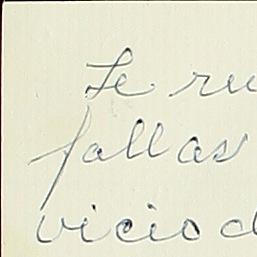 Te ru
fallas
vicio d